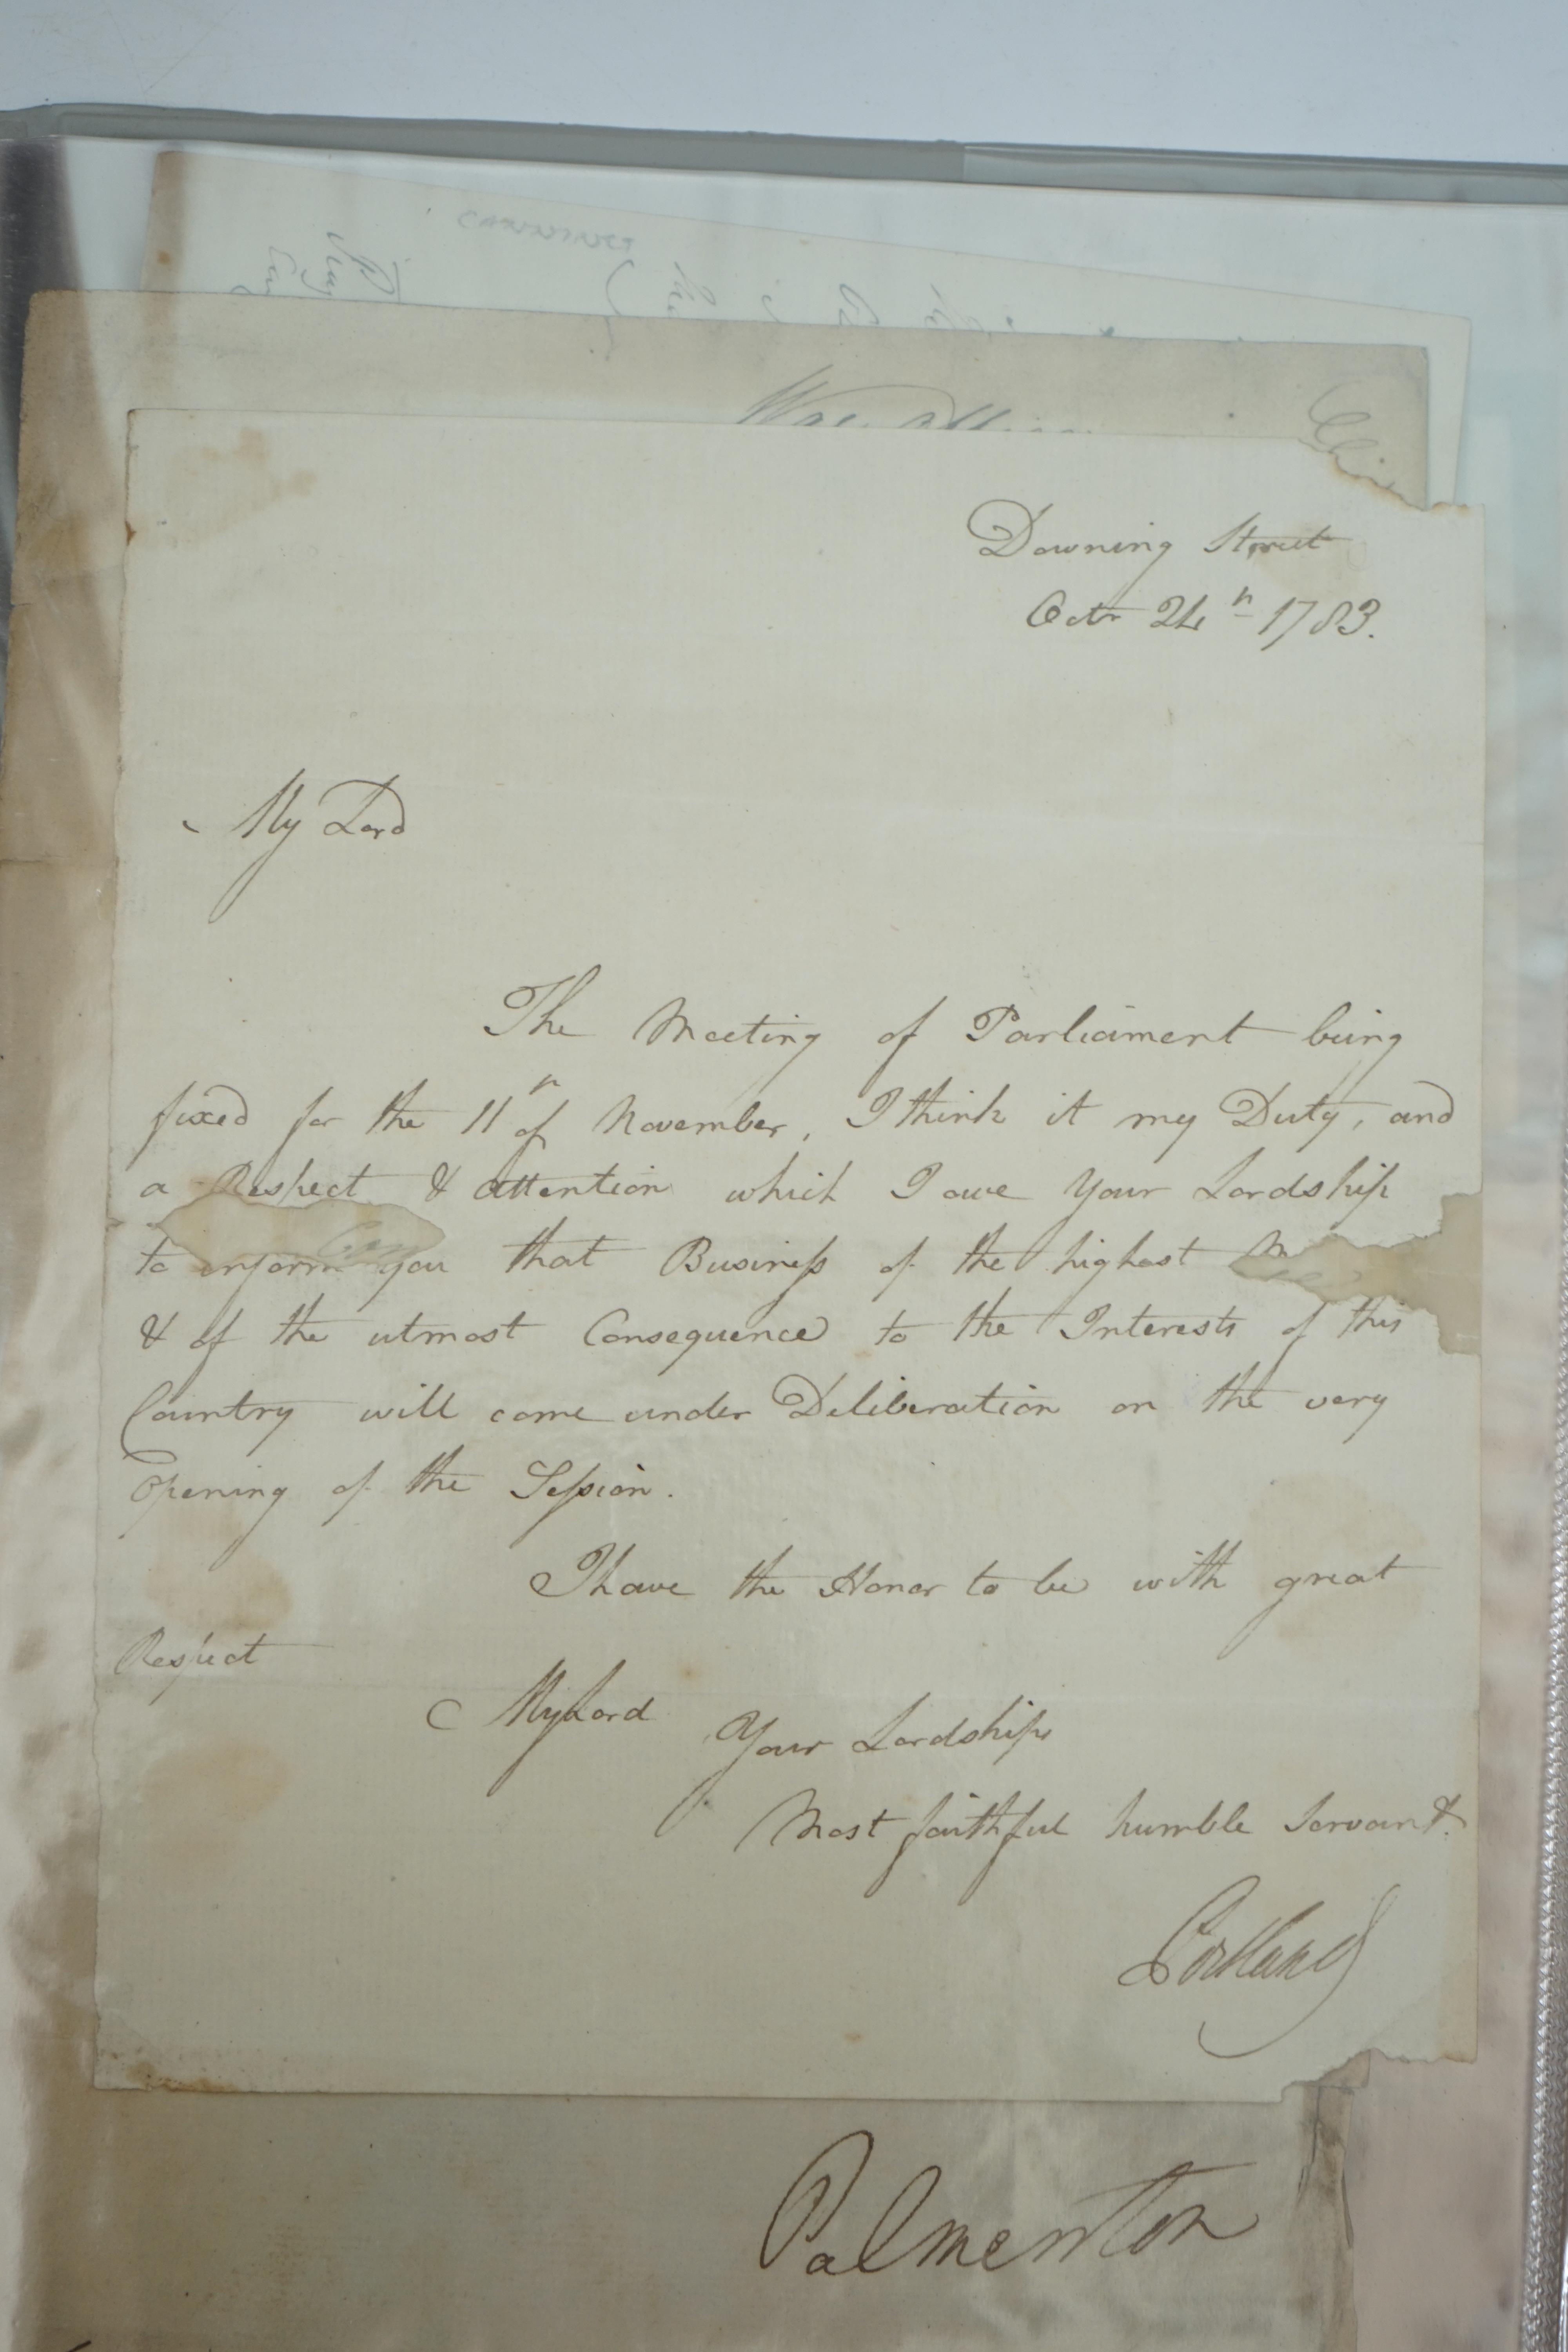 CANNING
Downing Street
Octr 24th 1783.
My Lord
The Meeting of Parliament being
fixed for the 11th of November, I think it my Duty, and
a Respect & attention which I owe Your Lordship
to inform you that Business of the highest
& of the utmost Consequence to the Interests of this
Country will come under Deliberation on the very
Opening of the Session.
I have the Honor to be with great
Respect
My Lord
Your Lordships
Most faithful humble Servant.
Portland
Palmerston